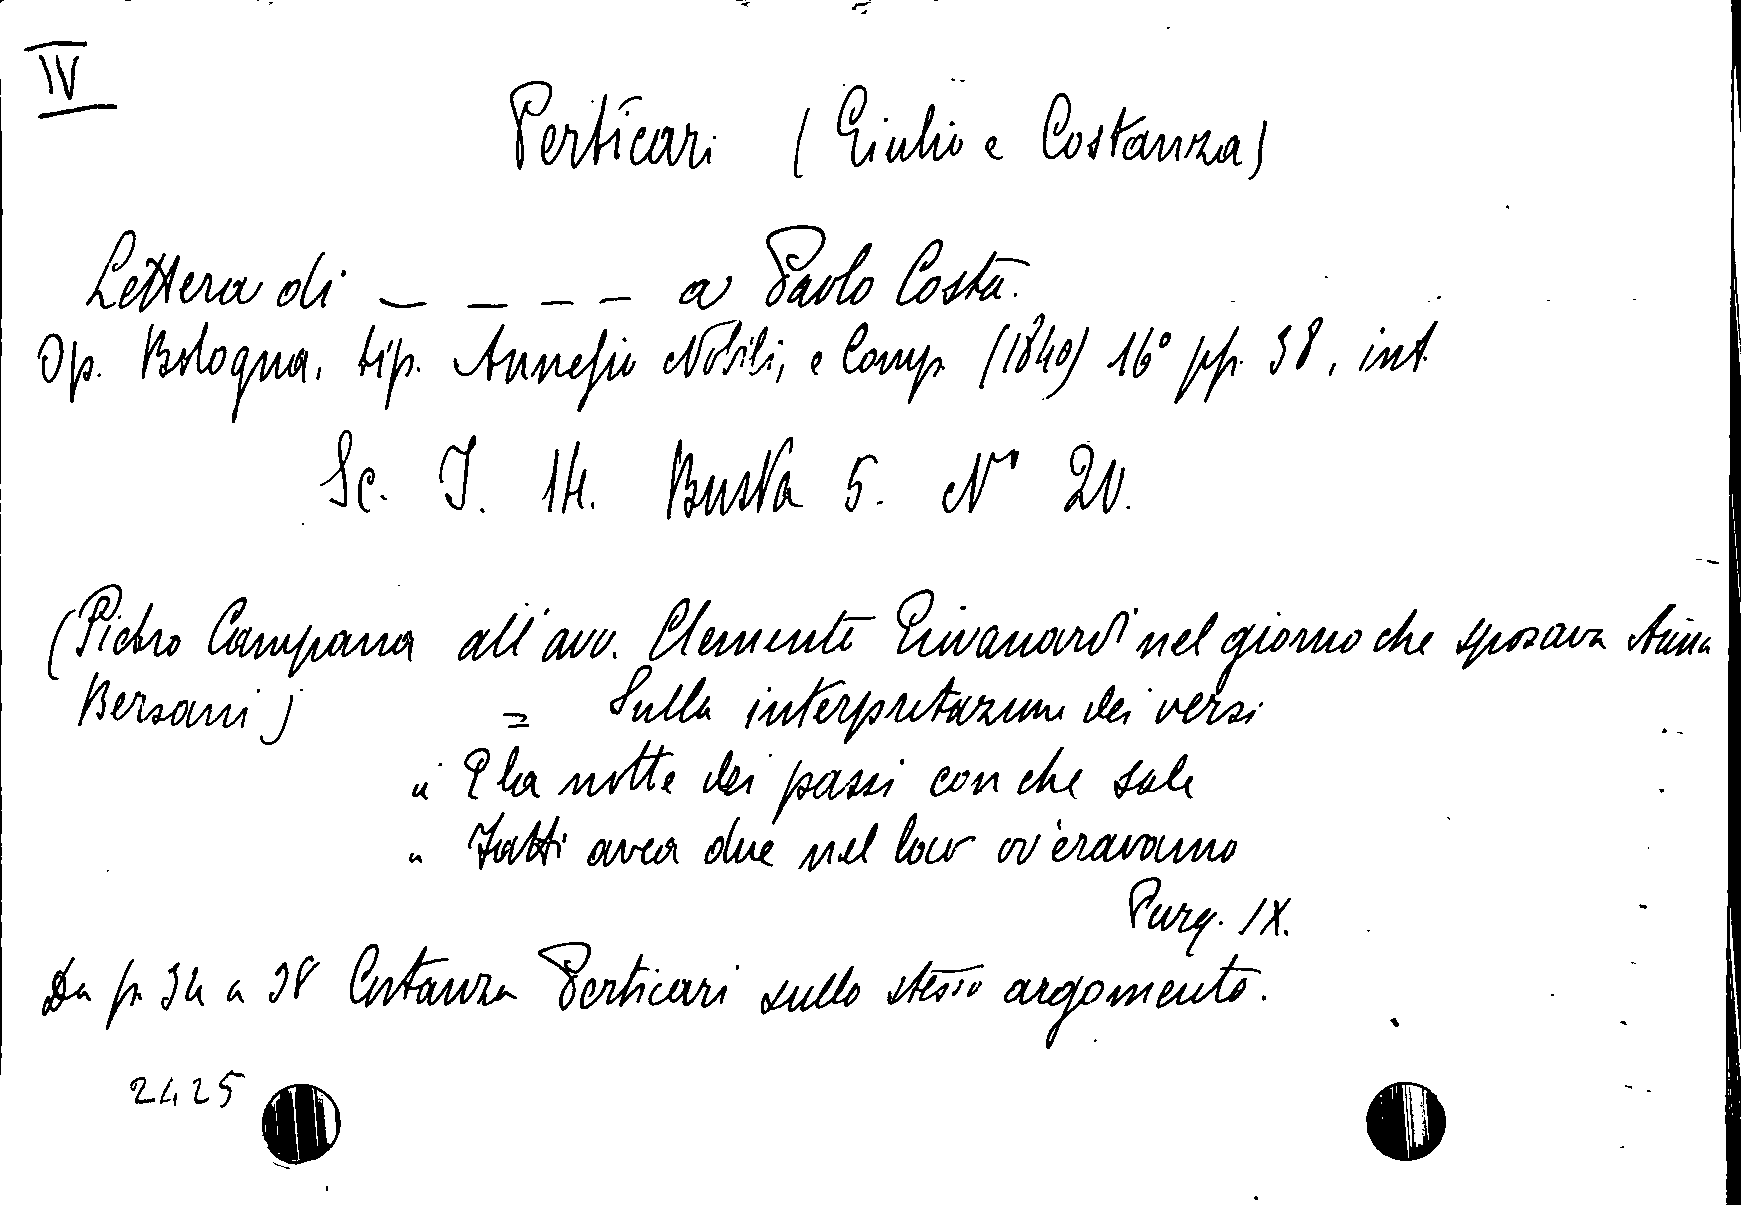 IV
Perticari (Giulio e Costanza)
Lettera di _ _ _ _ a Paolo Costa.
Op. Bologna, tip. Annesio Nobili, e Comp. (1840) 16° pp. 38, int.
Sc. I. 14. Busta 5. N° 20.
(Pietro Campana all'avv. Clemente Giovanardi nel giorno che sposava Anna
Bersani) = Sulla interpretazione dei versi
" E la notte dei passi con che sale
" Fatti avea due nel loco ov'eravamo
Purg. IX.
Da p. 34 a 38 Costanza Perticari sullo stesso argomento.
2425